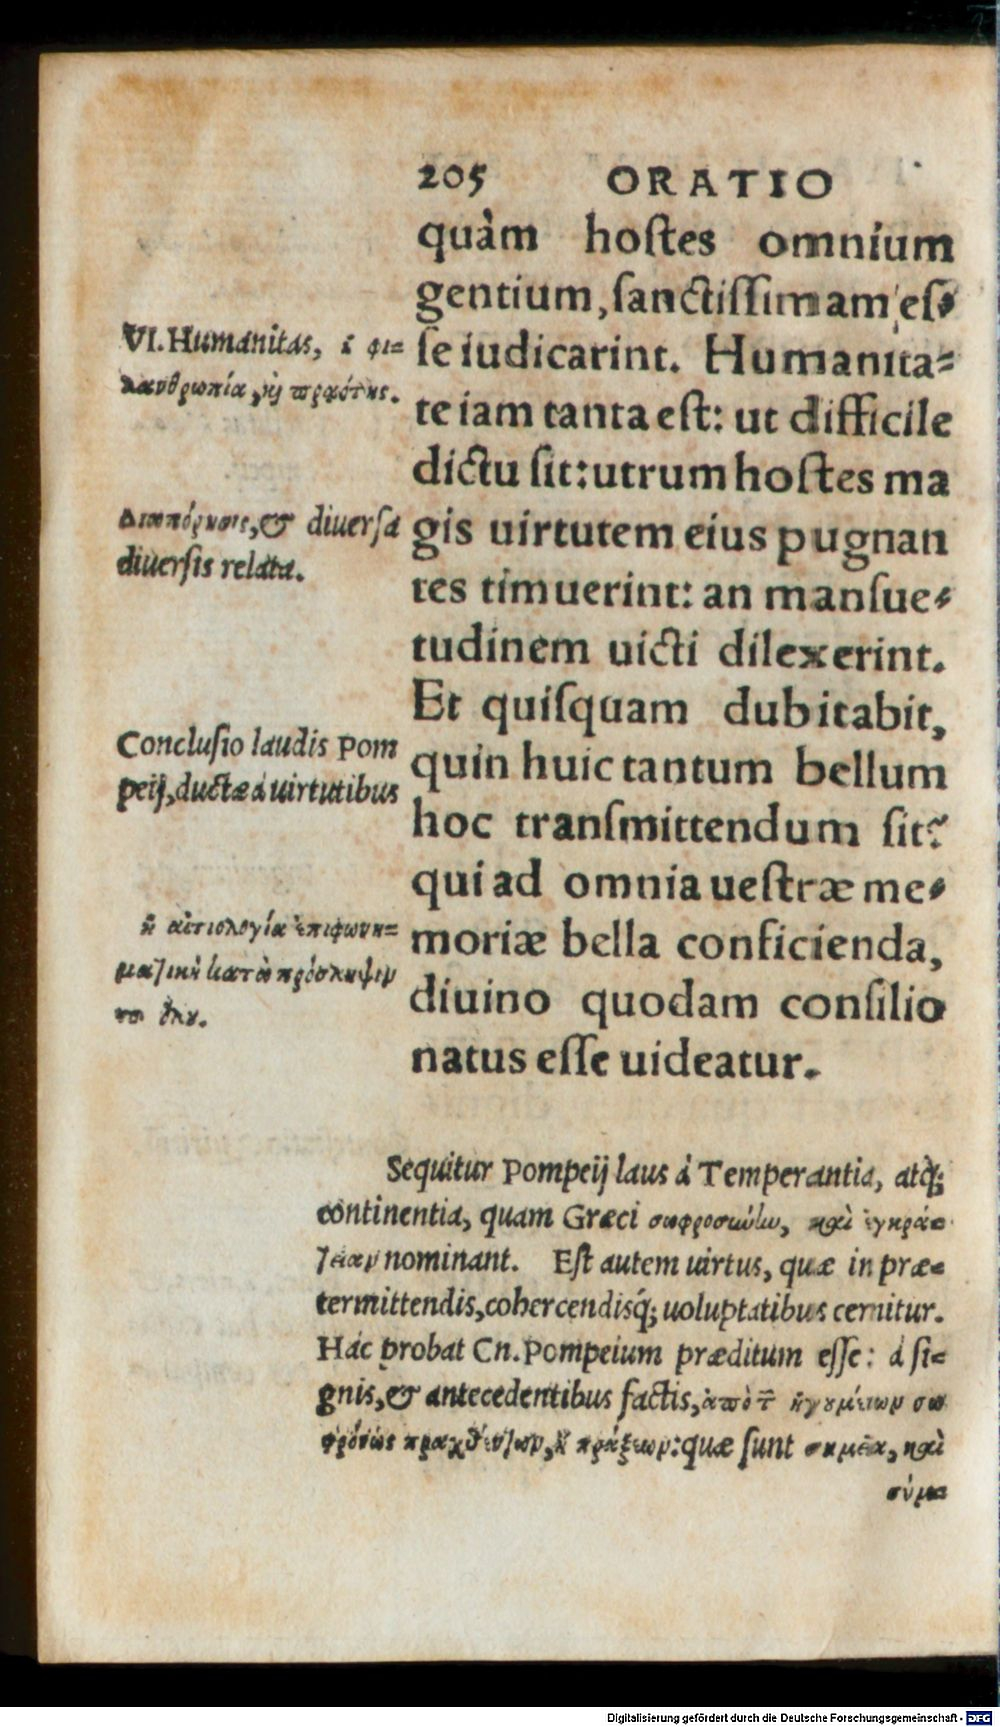 205 ORATIO
quàm hoſtes omnium
gentium, ſanctiſſimam eſ-
ſe iudicarint. Humanita-
te iam tanta eſt: ut difficile
dictu ſit: utrum hoſtes ma
gis uirtutem eius pugnan
tes timuerint: an manſue-
tudinem uicti dilexerint.
Et quiſquam dubitabit,
quin huic tantum bellum
hoc tranſmittendum ſit?
qui ad omnia ueſtræ me-
moriæ bella conficienda,
diuino quodam conſilio
natus eſſe uideatur.
VI. Humanitas, ἡ φι-
λανθρωπία, καὶ πραότης.
Διαπόρησις, & diuerſa
diuerſis relata.
Concluſio laudis Pom
peij, ductæ à uirtutibus
ἢ αἰτιολογία ἐπιφωνη-
ματικὴ κατὰ πρόσληψιν
Sequitur Pompeij laus à Temperantia, atq;
continentia, quam Græci σωφροσύνην, καὶ ἐγκρά-
τειαν nominant. Eſt autem uirtus, quæ in præ-
termittendis, cohercendisq; uoluptatibus cernitur.
Hac probat Cn. Pompeium præditum eſſe: à ſi-
gnis, & antecedentibus factis, ἀπὸ τῶν ἡγουμένων σω
φρόνως πραχθέντων, ἢ πράξεων: quæ ſunt σημεῖα, καὶ
σύμ-
Digitalisierung gefördert durch die Deutsche Forschungsgemeinschaft - DFG